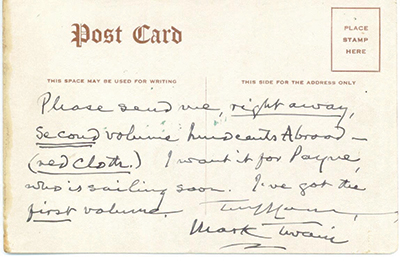 Post Card
PLACE
STAMP
HERE
THIS SPACE MAY BE USED FOR WRITING
THIS SIDE FOR THE ADDRESS ONLY
Please send me, right away,
second volume Innocents Abroad —
(red cloth.) I want it for Payne,
who is sailing soon. I've got the
first volume.
Mark Twain